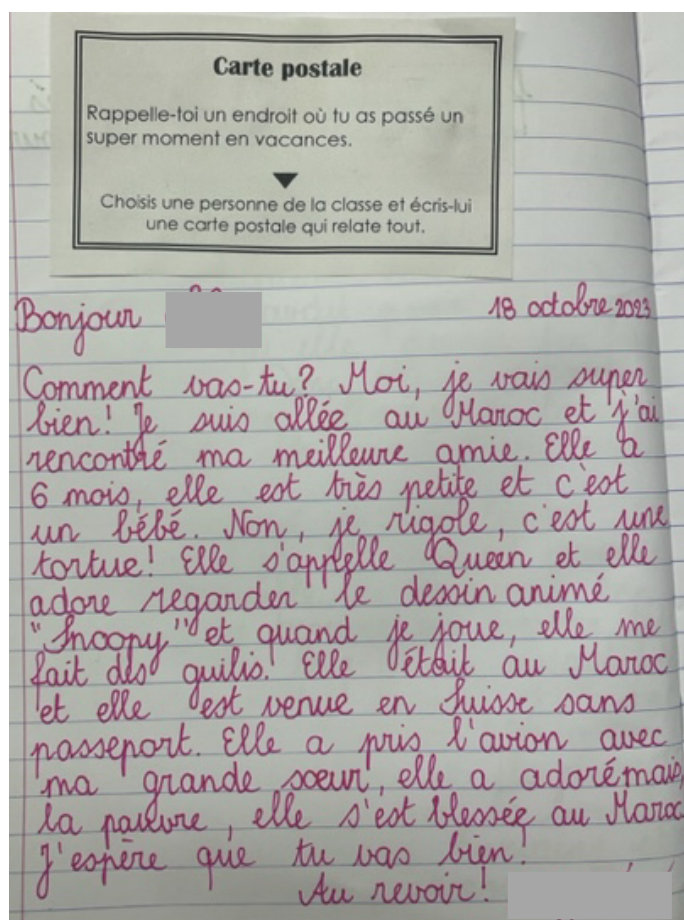 Carte postale
Rappelle-toi un endroit où tu as passé un
super moment en vacances.
Choisis une personne de la classe et écris-lui
une carte postale qui relate tout.
Bonjour
18 octobre 2023
Comment vas-tu? Moi, je vais super
bien! Je suis allée au Maroc et j'ai
rencontré ma meilleure amie. Elle a
6 mois, elle est très petite et c'est
un bébé. Non, je rigole, c'est une
tortue! Elle s'appelle Queen et elle
adore regarder le dessin animé
"Snoopy" et quand je joue, elle me
fait des guilis. Elle était au Maroc
et elle est venue en Suisse sans
passeport. Elle a pris l'avion avec
ma grande soeur, elle a adoré mais,
la pauvre, elle s'est blessée au Maroc
J'espère que tu vas bien!
Au revoir!